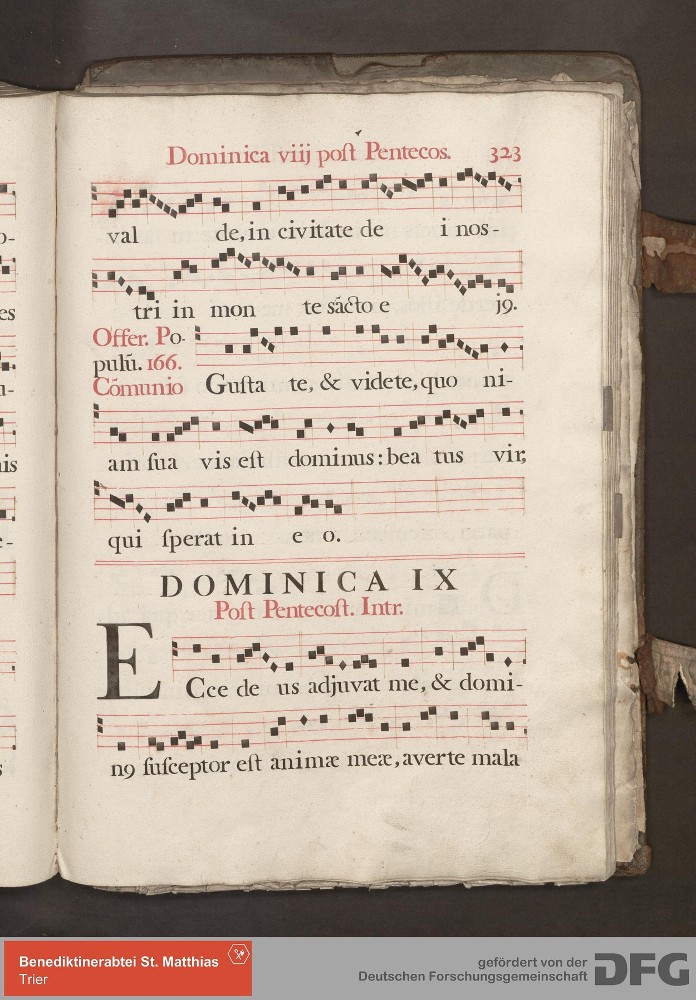 Dominica viij poſt Pentecos. 323
val de, in civitate de i nos-
tri in mon te sācto e jꝰ.
Offer. Po-
pulū. 166.
Cōmunio Guſta te, & videte, quo ni-
am ſua vis eſt dominus: bea tus vir,
qui ſperat in e o.
DOMINICA IX
Poſt Pentecoſt. Intr.
ECce de us adjuvat me, & domi-
nꝰ ſuſceptor eſt animæ meæ, averte mala
o-
es
u-
is
e-
s
Benediktinerabtei St. Matthias
Trier
gefördert von der
Deutschen Forschungsgemeinschaft
DFG